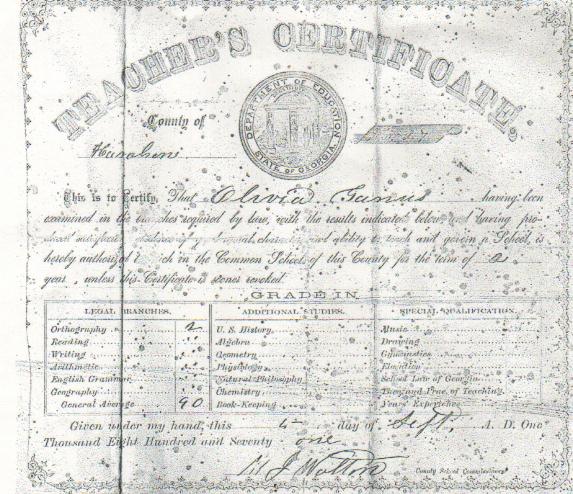 TEACHER'S CERTIFICATE,
County of
DEPARTMENT OF EDUCATION
STATE OF GEORGIA
This is to Certify, That Olivia having been
examined in the branches required by law, with the results indicated below, and having pro-
and ability to teach and govern a School, is
hereby authorized to teach in the Common Schools of this County for the term of 2
year , unless this Certificate is sooner revoked.
GRADE IN
LEGAL BRANCHES. ADDITIONAL STUDIES. SPECIAL QUALIFICATION.
Orthography 2 U. S. History, Music
Reading Algebra Drawing
Writing Geometry Gymnastics
Arithmetic Physiology Elocution
English Grammar Natural Philosophy School Law of Georgia
Geography Chemistry Theory and Prac. of Teaching
General Average 90 Book-Keeping Years' Experience
Given under my hand, this day of Sept. A. D. One
Thousand Eight Hundred and Seventy one
County School Commissioner